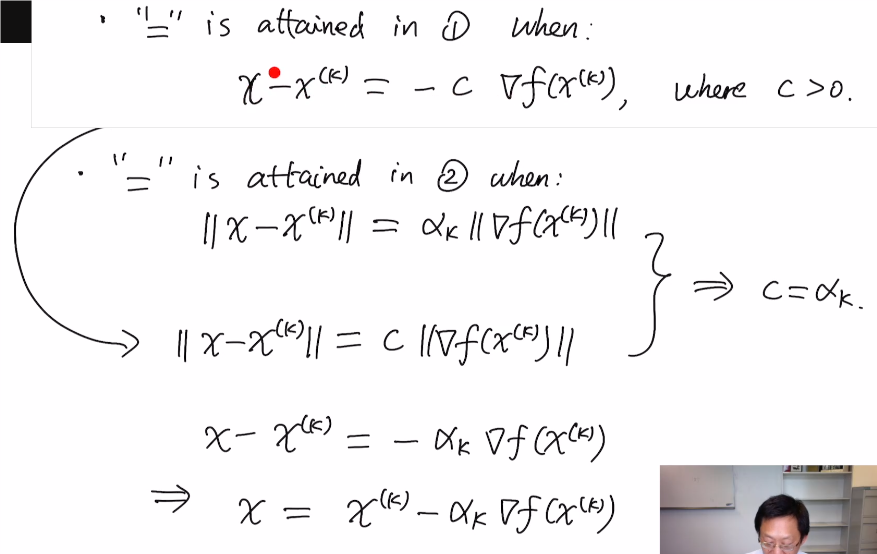 · "=" is attained in ① when:
x - x^(k) = - c ∇f(x^(k)), where c > 0.
· "=" is attained in ② when:
‖x - x^(k)‖ = α_k ‖∇f(x^(k))‖
⇒ c = α_k.
→ ‖x - x^(k)‖ = c ‖∇f(x^(k))‖
x - x^(k) = - α_k ∇f(x^(k))
⇒ x = x^(k) - α_k ∇f(x^(k))